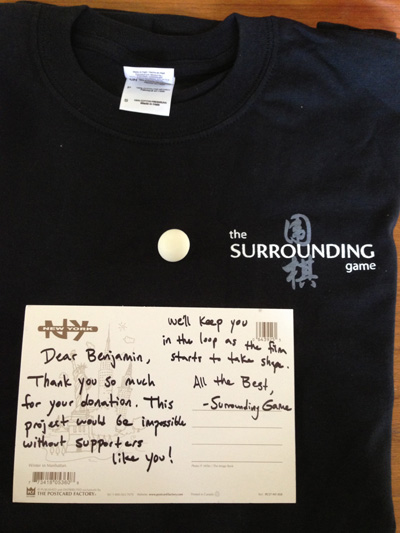 the
围
SURROUNDING
棋
game
NY
NEW YORK
Dear Benjamin,
Thank you so much
for your donation. This
project would be impossible
without supporters
like you!
we'll keep you
in the loop as the film
starts to take shape.
All the Best,
-Surrounding Game
THE POSTCARD FACTORY